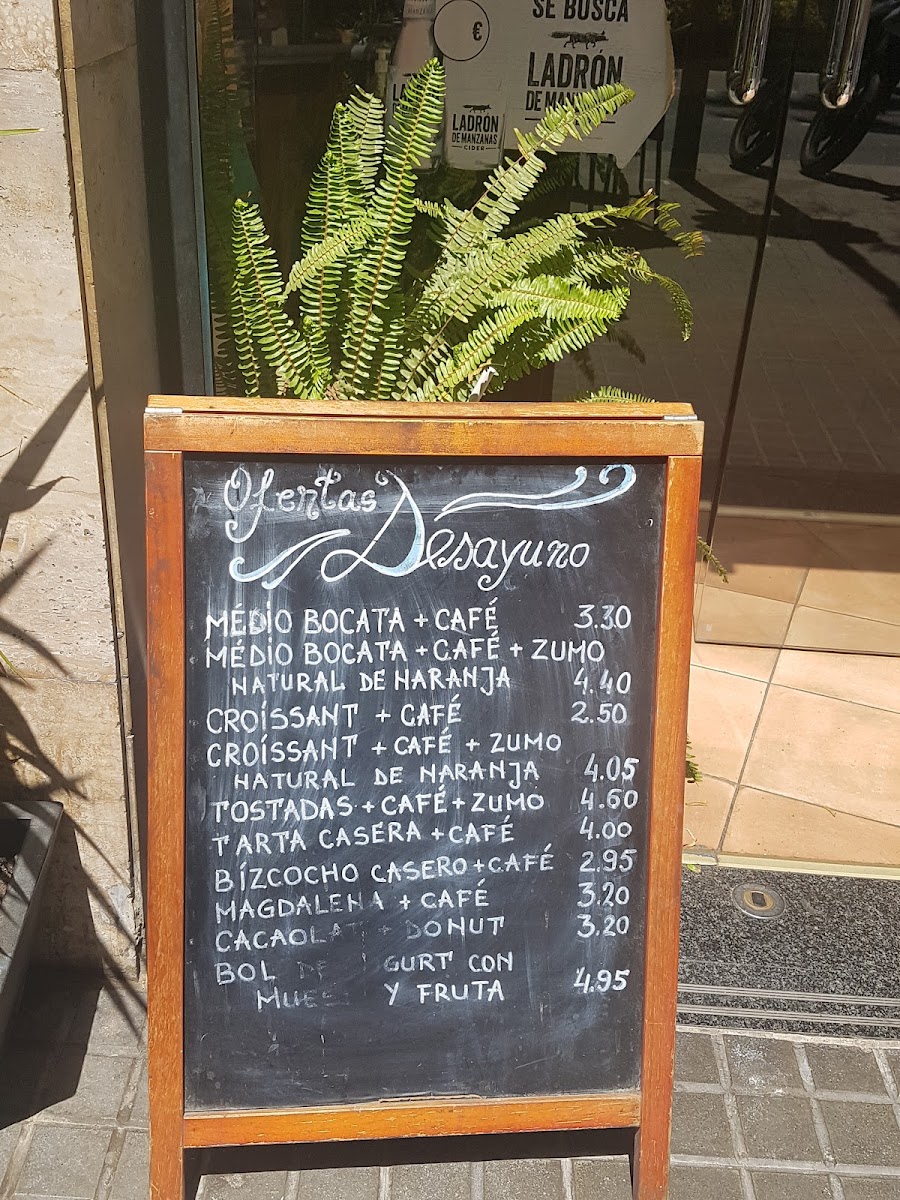 SE BUSCA
€
LADRÓN
DE MANZANAS
LADRÓN
DE MANZANAS
CIDER
Ofertas
Desayuno
MÉDIO BOCATA + CAFÉ 3.30
MÉDIO BOCATA + CAFÉ + ZUMO
NATURAL DE NARANJA 4.40
CROÍSSANT + CAFÉ 2.50
CROÍSSANT + CAFÉ + ZUMO
NATURAL DE NARANJA 4.05
TOSTADAS + CAFÉ + ZUMO 4.60
TARTA CASERA + CAFÉ 4.00
BÍZCOCHO CASERO + CAFÉ 2.95
MAGDALENA + CAFÉ 3.20
CACAOLAT + DONUT 3.20
BOL DE GURT CON
Y FRUTA 4.95